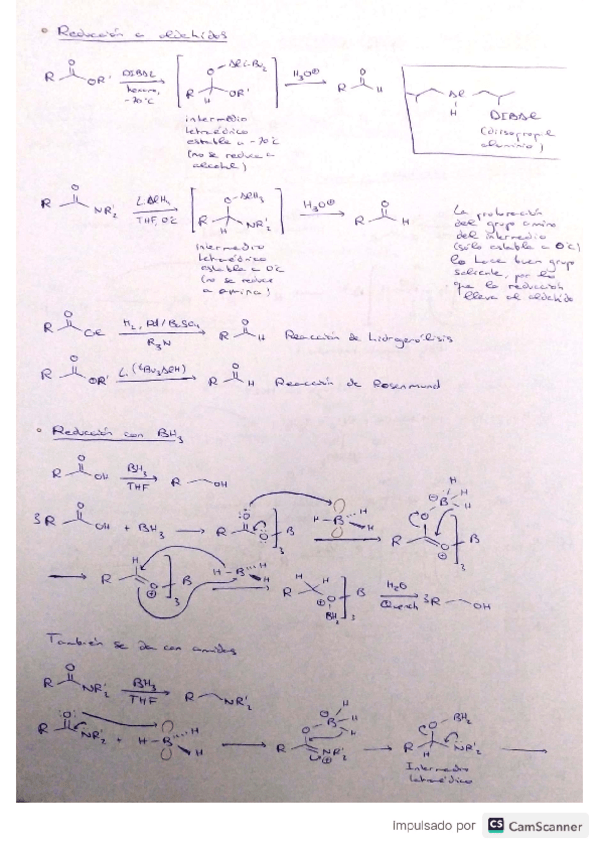 Reducción a aldehídos
R O OR' DIBAL hexano, -70°C R O Ali-Bu2 H OR' H3O⊕ R O H
intermedio
tetraédrico
estable a -70°C
(no se reduce a
alcohol)
Al
H
DIBAL
(diisopropil
aluminio)
R O NR'2 LiAlH4 THF, 0°C R O AlH3 H NR'2 H3O⊕ R O H
Intermedio
tetraédrico
estable a 0°C
(no se reduce
a amina)
La protonación
del grupo amino
del intermedio
(sólo estable a 0°C)
lo hace buen grupo
saliente, por lo
que la reducción
lleva al aldehído
R O Cl H2, Pd/BaSO4 R3N R O H Reacción de hidrogenólisis
R O OR' Li(tBu3AlH) R O H Reacción de Rosenmund
Reducción con BH3
R O OH BH3 THF R OH
3 R O OH + BH3 R O O 3 B H B H H R O O 3 B ⊖ B H H H
R H O ⊕ 3 B H B H H R H H O ⊕ BH2 3 B H2O Quench 3 R OH
También se da con amidas
R O NR'2 BH3 THF R NR'2
R O NR'2 + H B H H R O ⊖ B H H H NR'2 ⊕ R O BH2 H NR'2
Intermedio
tetraédrico
Impulsado por CS CamScanner